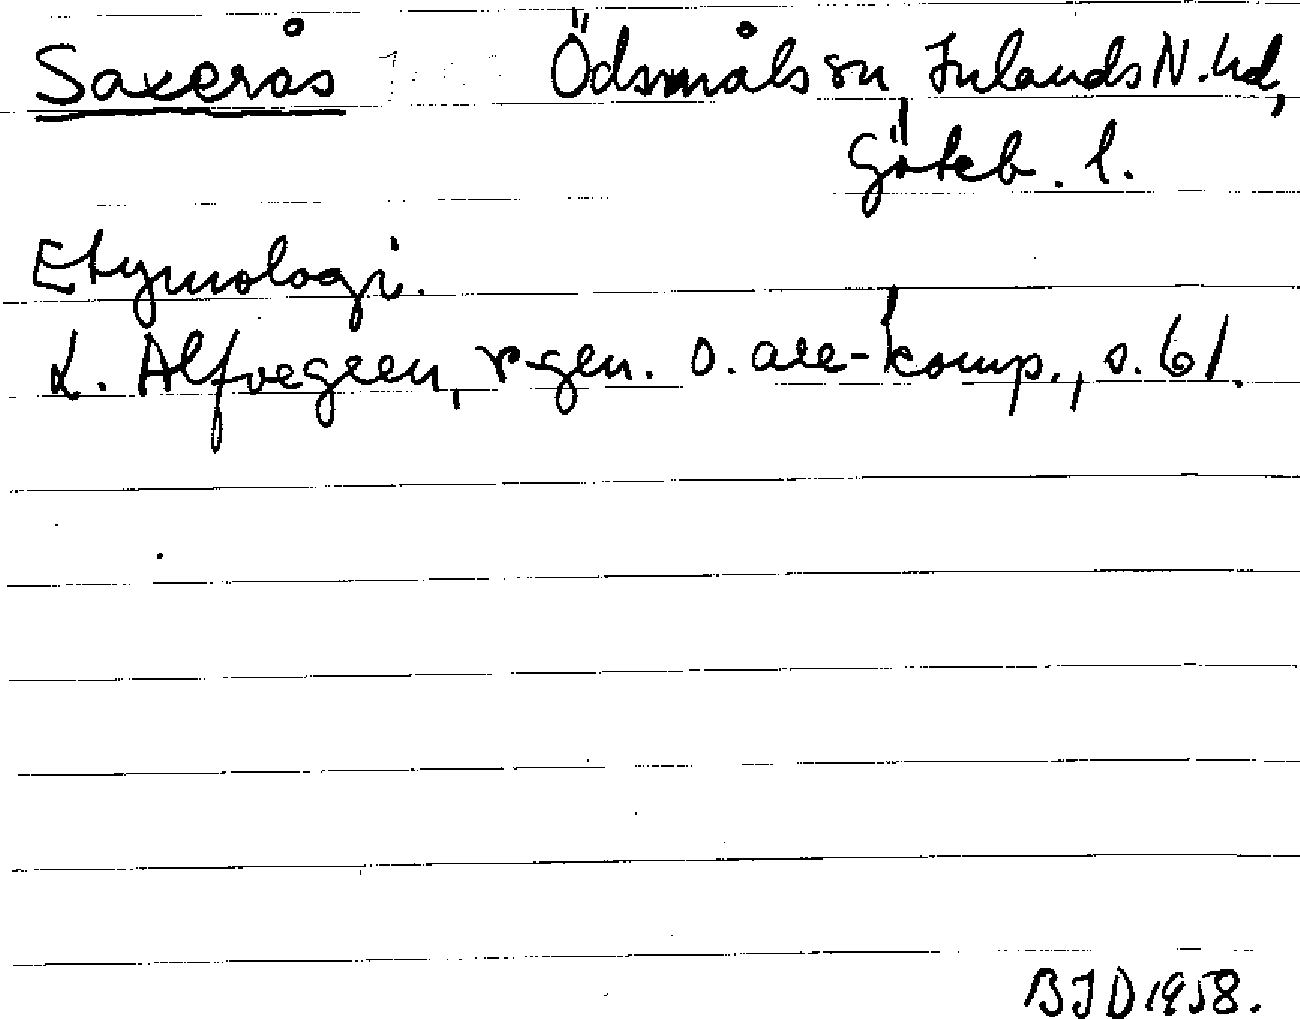 Saxerås Ödsmåls sn, Inlands N. hd,
Göteb. l.
Etymologi.
L. Alfvegren, r-gen. o. are-komp., s. 61.
BJD 1958.